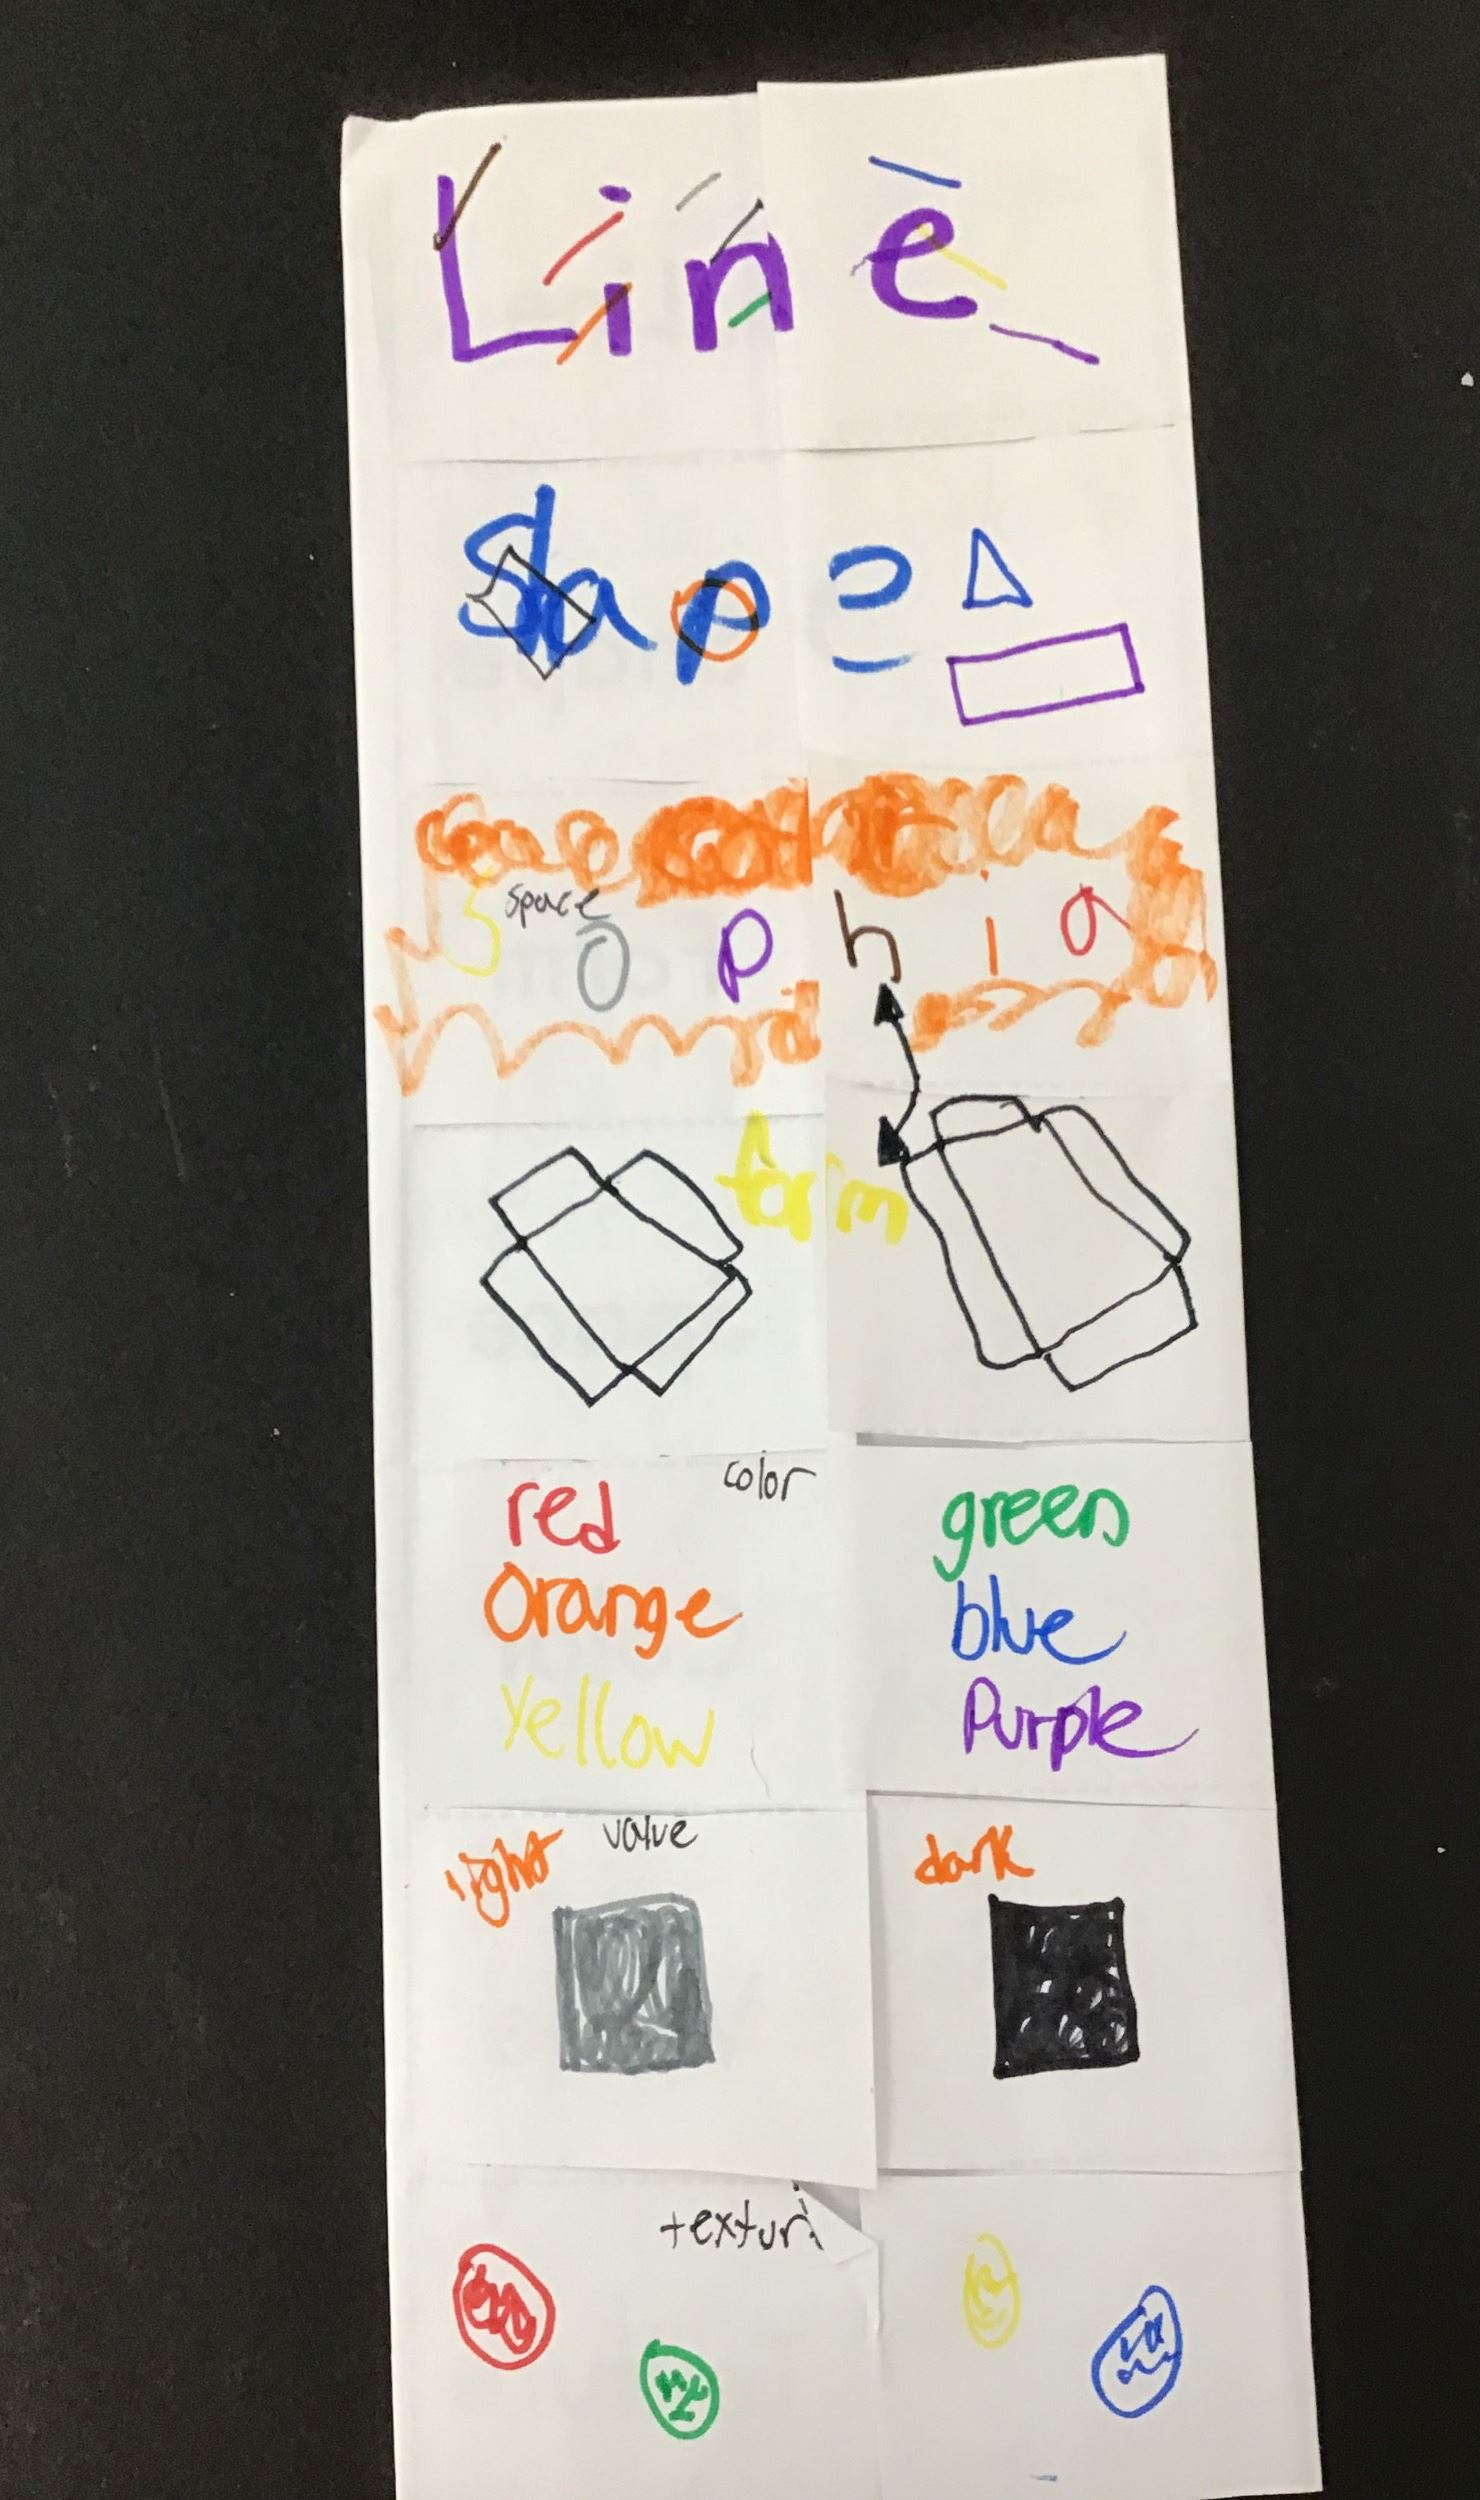 Line
Shape
space
Sophia
form
color
red green
Orange blue
Yellow Purple
value
light dark
textur